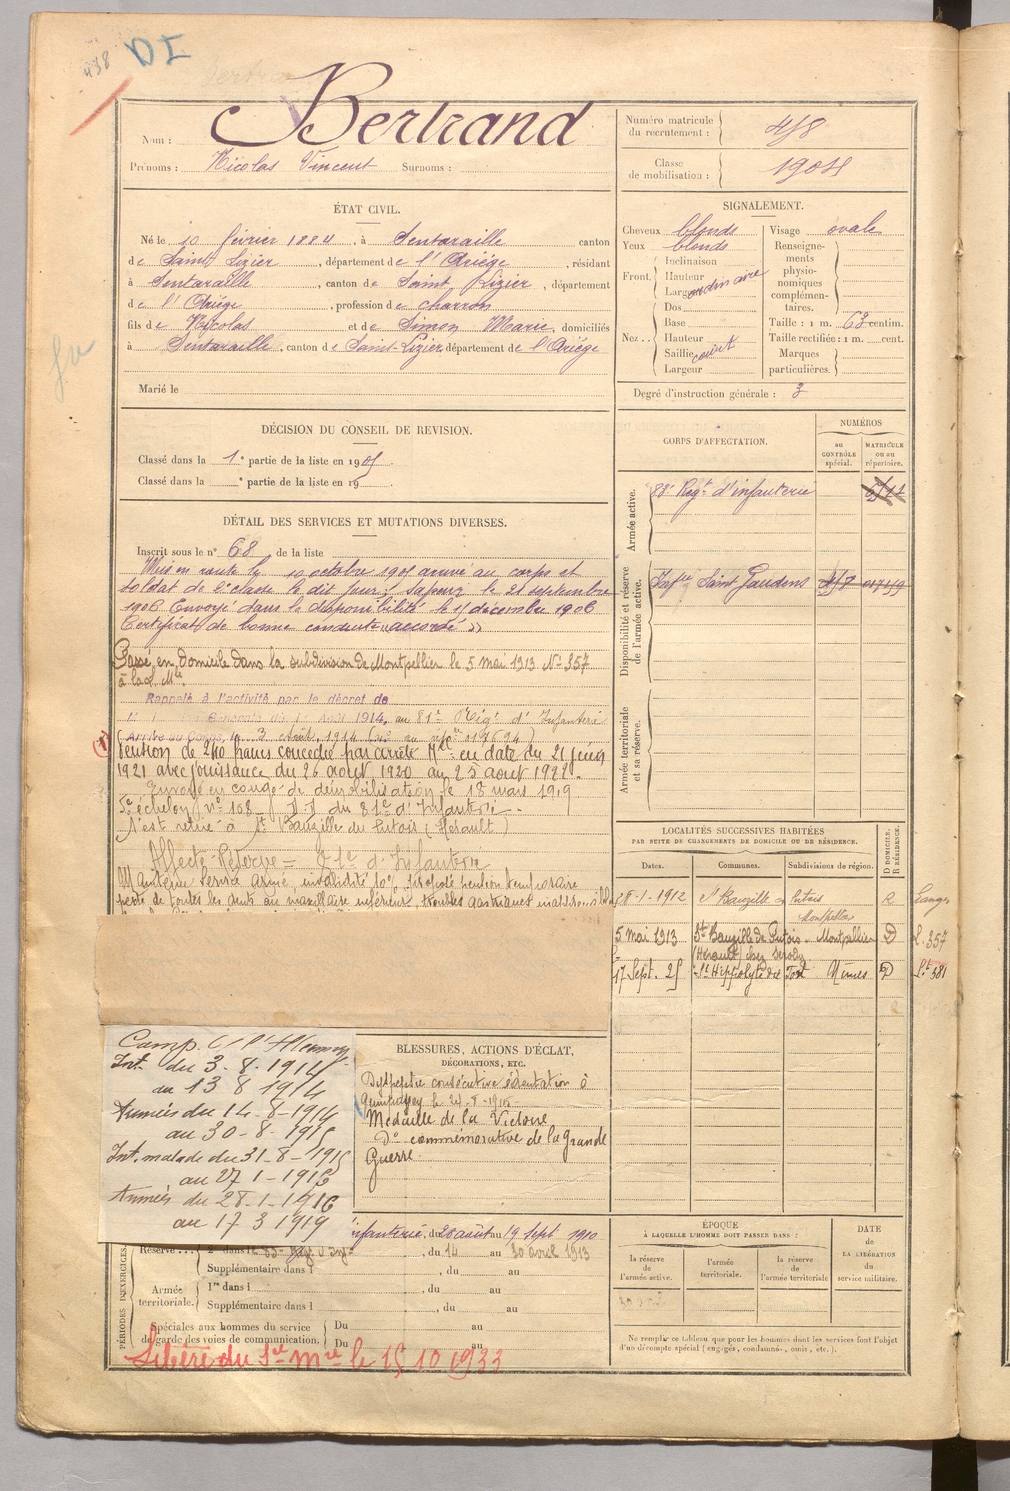 438
DI
Nom : Bertrand
Prénoms : Nicolas Vincent Surnoms :
Numéro matricule du recrutement : 458
Classe de mobilisation : 1904
ÉTAT CIVIL.
Né le 10 février 1884, à Sentaraille canton
de Saint Lizier, département de l'Ariége, résidant
à Sentaraille, canton de Saint Lizier, département
de l'Ariége, profession de charron
fils de Nicolas et de Simon Marie, domiciliés
à Sentaraille, canton de Saint-Lizier, département de l'Ariége
Marié le
SIGNALEMENT.
Cheveux blonds
Yeux blonds
Front. Inclinaison
Hauteur
Largeur ordinaire
Nez .. Dos
Base
Hauteur
Saillie court
Largeur
Visage ovale
Renseignements physionomiques complémentaires.
Taille : 1 m. 63 centim.
Taille rectifiée : 1 m. cent.
Marques particulières.
Degré d'instruction générale : 3
DÉCISION DU CONSEIL DE REVISION.
Classé dans la 1e partie de la liste en 1905.
Classé dans la e partie de la liste en 19
CORPS D'AFFECTATION.
NUMÉROS
au CONTRÔLE spécial.
MATRICULE ou au répertoire.
Armée active.
88e Regt d'infanterie
Disponibilité et réserve de l'armée active.
Infie Saint Gaudens
Armée territoriale et sa réserve.
DÉTAIL DES SERVICES ET MUTATIONS DIVERSES.
Inscrit sous le n° 68 de la liste
Mis en route le 10 octobre 1905 arrivé au corps et
soldat de 2e classe le dit jour; sapeur le 21 septembre
1906 Envoyé dans la disponibilité le 15 décembre 1906
Certificat de bonne conduite "accordé"
Passé en domicile dans la subdivision de Montpellier le 5 mai 1913 No 357
à la L. Mle
Rappelé à l'activité par le décret de
1914, au 81e Régt d'Infanterie
Arrivé au Corps, le 3 Août 1914
(1)
Pension de 240 francs concedée par arrêté Mel en date du 21 février
1921 avec jouissance du 26 août 1920 au 25 aout 1922.
Envoyé en congé de démobilisation le 18 mars 1919
5e échelon n° 108 D.D. du 81e d'Infanterie.
s'est retiré à St Bauzille du Putois (Hérault)
Affecté Réserve = 81e d'Infanterie
Maintenu Service armé, invalidité 10%, proposé pension temporaire
perte de toutes les dents au maxillaire inférieur, troubles gastriques
LOCALITÉS SUCCESSIVES HABITÉES
PAR SUITE DE CHANGEMENTS DE DOMICILE OU DE RÉSIDENCE.
Dates. Communes. Subdivisions de région. D DOMICILE, R RÉSIDENCE.
28-1-1912 St Bauzille du Putois Montpellier R
5 mai 1913 St Bauzille de Putois Montpellier D L. 357
(Hérault) chez
17 Sept. 25 St Hippolyte du Fort Nîmes D 581
Camp. C. l'Allemagne
Int. du 3-8-1914
au 13 8 1914
Armées du 14-8-1914
au 30-8-1915
Int. malade du 31-8-1915
au 27 1-1916
Armées du 28-1-1916
au 17 3 1919
BLESSURES, ACTIONS D'ÉCLAT,
DÉCORATIONS, ETC.
Dyspepsie consécutive édentation à
le 24-8-1915
Médaille de la Victoire
do commémorative de la Grande
Guerre
PÉRIODES D'EXERCICES.
infanterie, du 28 août au 19 Sept 1910
Réserve... 2e dans l, du 14 au 30 avril 1913
Supplémentaire dans l, du au
Armée territoriale. 1re dans l, du au
Supplémentaire dans l, du au
Spéciales aux hommes du service de garde des voies de communication. Du au
Du au
Libéré du Sce Mre le 15 10 1933
ÉPOQUE
À LAQUELLE L'HOMME DOIT PASSER DANS :
la réserve de l'armée active.
l'armée territoriale.
la réserve de l'armée territoriale
DATE de LA LIBÉRATION du service militaire.
Ne remplir ce tableau que pour les hommes dont les services font l'objet
d'un décompte spécial (engagés, condamnés, omis, etc.).